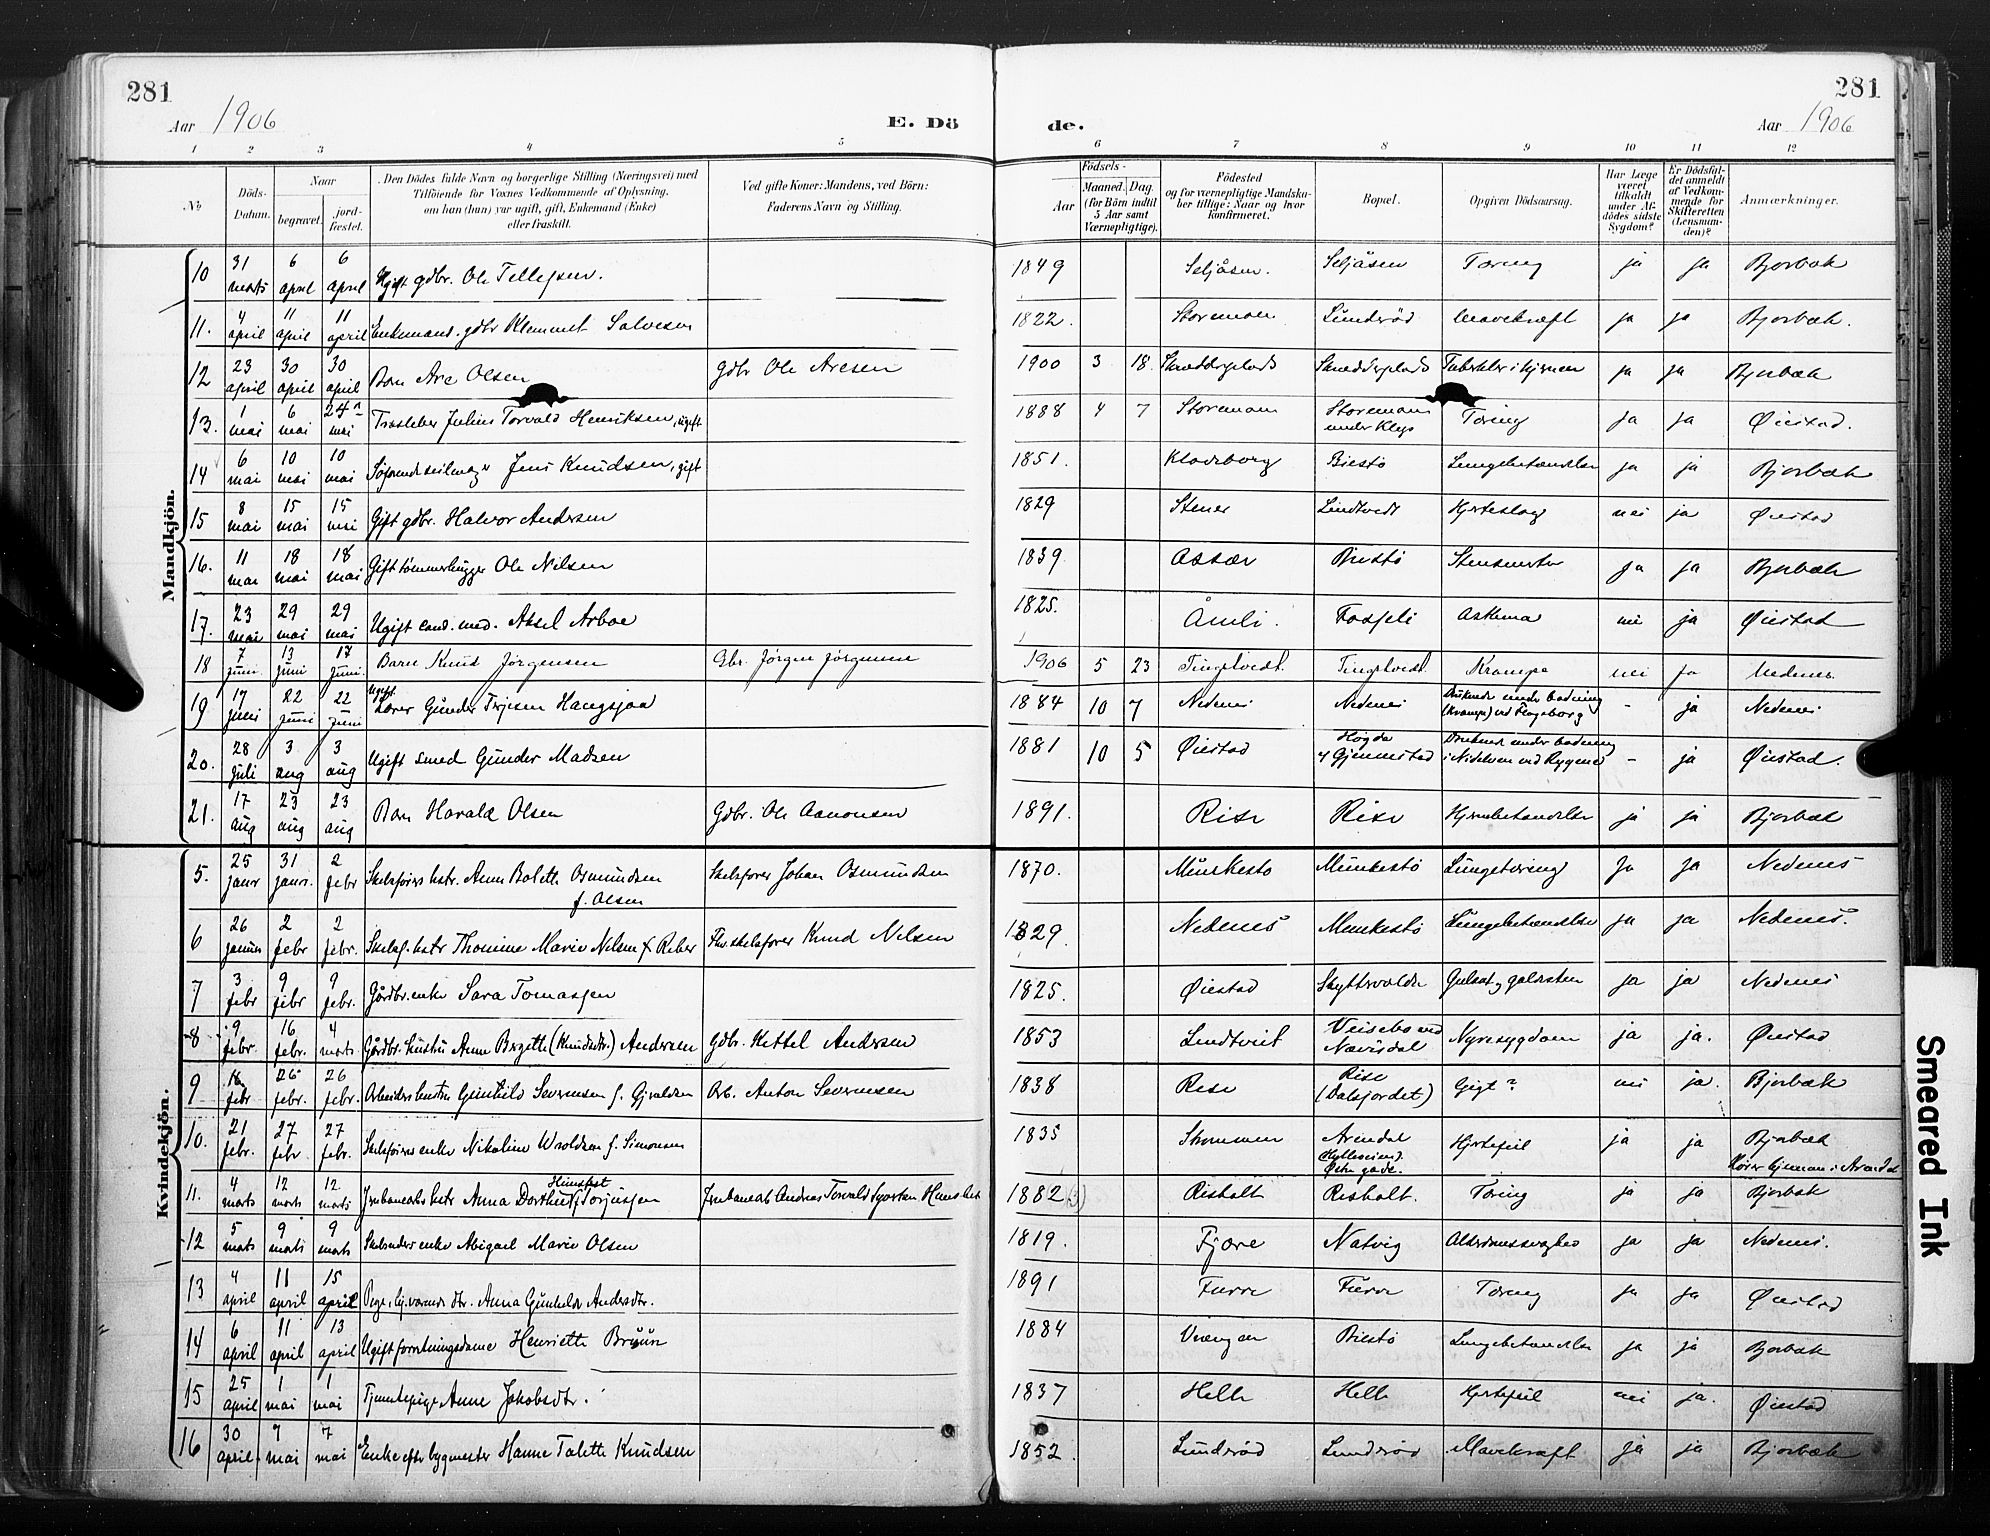 281
281
Aar 1906
E. Dö
de.
Aar 1906
1 2 3 4 5 6 7 8 9 10 11 12
No
Döds-Datum.
Naar
begravet.
jord-fæstet.
Den Dödes fulde Navn og borgerlige Stilling (Næringsvei) med
Tilföiende for Voxnes Vedkommende af Oplysning.
om han (hun) var ugift, gift, Enkemand (Enke)
eller fraskilt.
Ved gifte Koner: Mandens, ved Börn:
Faderens Navn og Stilling.
Födsels-
Aar
Maaned. Dag.
(for Börn indtil
5 Aar samt
Værnepligtige).
Födested
og for værnepligtige Mandskaber tillige: Naar og hvor
konfirmeret.
Bopæl.
Opgiven Dödsaarsag.
Har Læge været tilkaldt under Afdödes sidste Sygdom?
Er Dödsfaldet anmeldt af Vedkommende for Skifteretten (Lensmanden)?
Anmærkninger.
Mandkjön.
10 31 marts 6 april 6 april gdbr. Ole Tellefsen. 1849 Seljåsen. Seljåsen Tæring ja ja Bjorbæk
11. 4 april 11 april 11 april Enkemand. gdbr Klemmet Salvesen 1822. Storemoen Lunderød Mavekræft ja ja Bjorbæk.
12 23 april 30 april 30 april Barn Are Olsen Gdbr Ole Aresen 1900 3 18 ja ja Bjorbæk
13. 1 mai 6 mai 24 mai Julius Torvald Henriksen, ugift 1888 4 7 Storemoen Storemoen under Tæring ja ja Øiestad.
14 6 mai 10 mai 10 mai Jens Knudsen, gift 1851. Klodeborg Biestø Lungebetændelse ja ja Bjorbæk
15 8 mai 15 mai 15 mai Gift gdbr. Halvor Andersen 1829 Stener Lindtvedt Hjerteslag nei ja Øiestad
16. 11 mai 18 mai 18 mai Gift tømmerhugger Ole Nilsen 1839. Assær Biestø ja ja Bjorbæk
17. 23 mai 29 mai 29 mai Ugift cand. med. Aksel Arboe 1825. Åmli. Fosseli Asthma nei ja Øiestad
18 7 juni 13 juni 17 juni. Barn Knud Jørgensen Gbr. Jørgen Jørgensen 1906 5 23 Tingstvedt. Tingstvedt. Krampe nei ja Nedenes
19 17 juni 22 juni 22 juni Ugift Lærer Gunder Hangsjaa 1884 10 7 Nedenes Nedenes Druknede under badning (Krampe) ved - ja Nedenes
20. 28 juli 3 aug 3 aug Ugift smed Gunder Madsen 1881 10 5 Øiestad Gjennestad Druknede under badning i Nidelven ved Rygene - ja Øiestad.
21. 17 aug 23 aug 23 aug Barn Harald Olsen Gdbr. Ole Aanonsen 1891. Rise Rise Hjernebetændelse ja ja Bjorbæk
Kvindekjön.
5. 25 janr 31 janr. 2 febr hstr. Anne Bolette Osmundsen f. Olsen Skibsfører Johan Osmundsen 1870. Munkestø Munkestø Lungetæring ja ja Nedenes
6 26 2 febr 2 febr. hstr Thomine Marie Nilsen f. Reber Fhv. skibsfører Knud Nilsen 1829. Nedenes Munkestø Lungebetændelse ja ja Nedenes.
7 3 febr 9 febr 9 febr. Gårdbr. enke Sara Tomassen 1825. Øiestad Gulsot og galdesten ja ja Nedenes
8 9 febr. 16 febr. 4 marts Gårdbr. hustru Anne Birgitte (Knudsdtr.) Andersen Gdbr. Kittel Andersen 1853 Lindtveit Veisebo ved Nævisdal Nyresygdom ja ja. Øiestad
9 18 febr 26 febr. 26 febr. Arbeiders hustru Gunhild Severinsen f. Gjeruldsen Arb. Anton Severinsen 1838 Rise Rise (Dalsfjordet) Gigt? nei ja. Bjorbæk
10. 21 febr. 27 febr 27 febr. Skibsførers enke Nikoline Wroldsen f. Simonsen 1835 Strømmen Arendal Østre gade. Hjertefeil ja ja Bjorbæk i Arendal
11. 4 marts 12 marts 12 marts hstr Anna Dorthea Torjussen Andreas Torvald 1882 (3) Risholt Risholt. Tæring ja ja Bjorbæk
12 5 marts 9 marts 9 marts enke Abigael Marie Olsen 1819. Fjære Natvig Alderdomssvaghed ja ja Nedenes.
13 4 april 11 april 15 april Pige, hj.værende dtr. Anna Gunhilde Andersdtr. 1891 Furre Furre Tæring ja ja Øiestad
14 6 april 11 april 13 april Ugift forretningsdame Henriette Bruun 1884 Biestø Lungebetændelse ja ja Bjorbæk
15 25 april 1 mai 1 mai Tjenestepige Anne Jakobsdtr. 1837 Helle Helle Hjertefeil nei ja. Øiestad
16 30 april 7 mai 7 mai Enke efter bygmester Hanne Talette Knudsen 1852. Lunderød Lunderød Mavekræft ja ja Bjorbæk
Smeared Ink